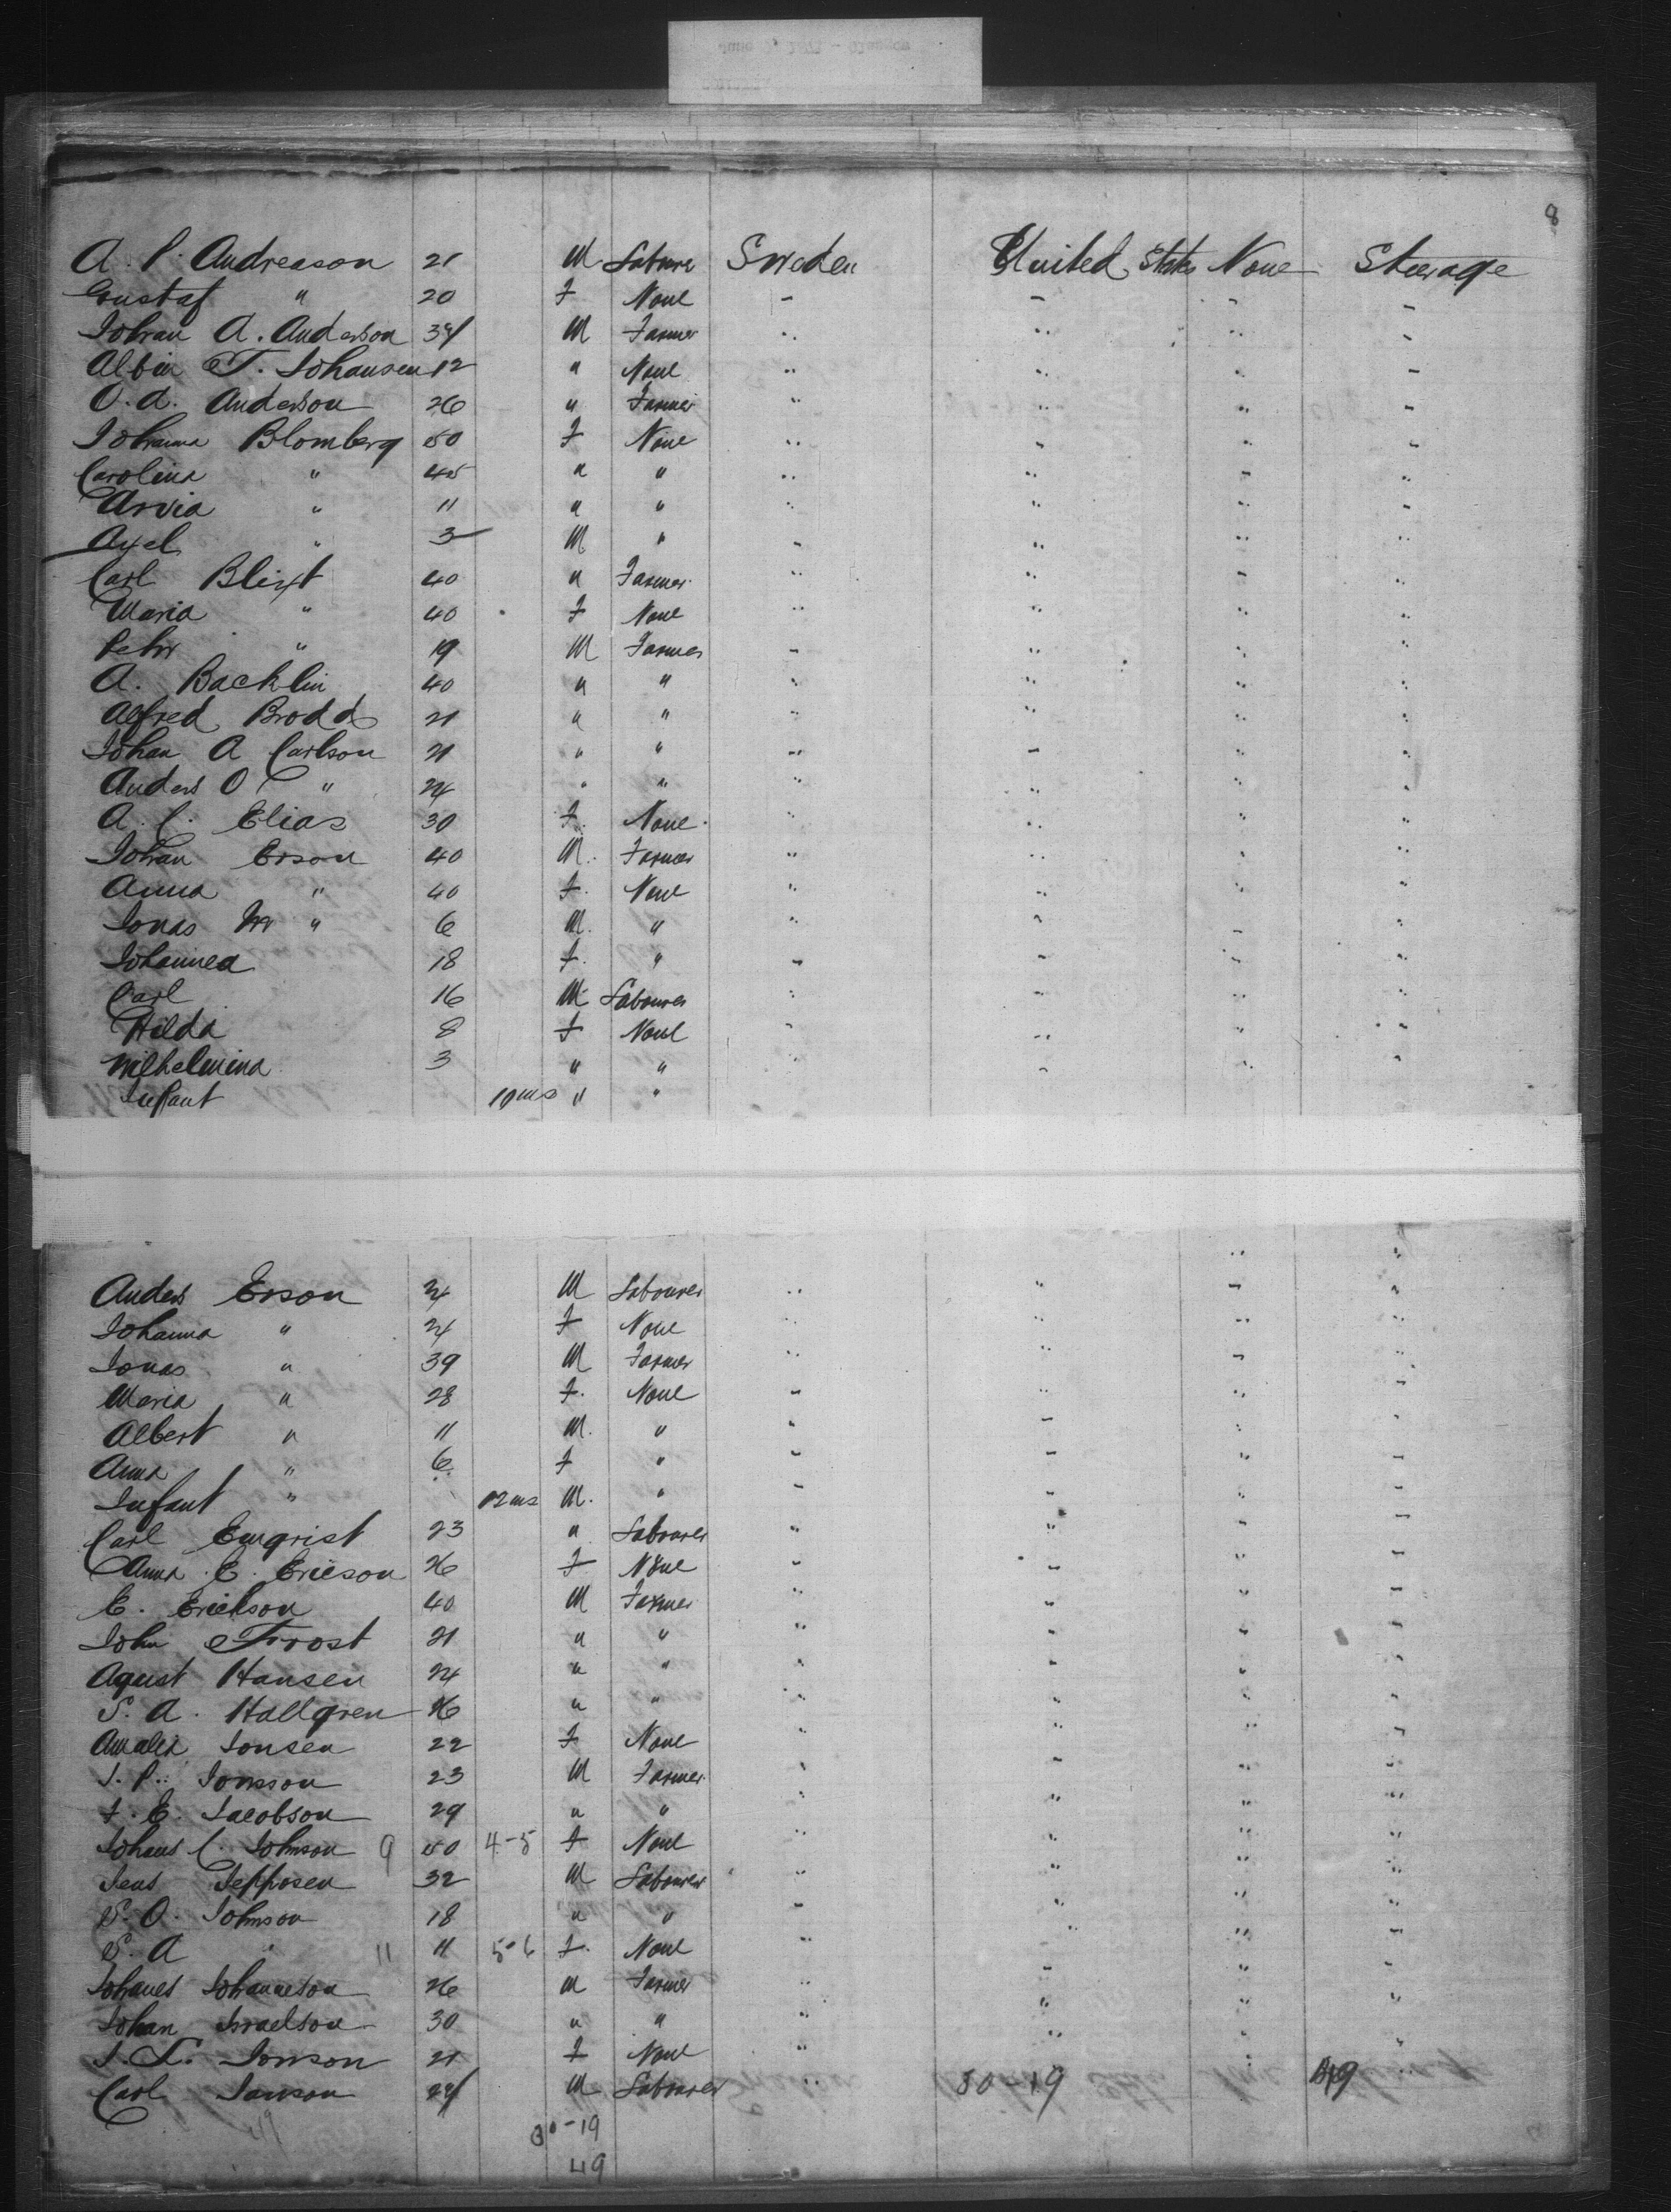 8
A. P. Andreason 21 M Laborer Sweden United States None Steerage
Gustaf " 20 F None " " " "
Johan A. Anderson 34 M Farmer " " " "
Albin T. Johansen 12 " None " " " "
O. A. Anderson 26 " Farmer " " " "
Johanna Blomberg 50 F None " " " "
Carolina " 45 " " " " " "
Arvia " 11 " " " " " "
Axel " 3 M " " " " "
Carl Blixt 40 " Farmer " " " "
Maria " 40 F None " " " "
Pehr " 19 M Farmer " " " "
A. Backlin 40 " " " " " "
Alfred Brodd 21 " " " " " "
Johan A Carlson 21 " " " " " "
Anders O " 24 " " " " " "
A. C. Elias 30 F. None " " " "
Johan Erson 40 M. Farmer " " " "
Anna " 40 F. None " " " "
Jonas M " 6 M. " " " " "
Johannea 18 F. " " " " "
Carl 16 M Labourer " " " "
Hilda 8 F None " " " "
Wilhelmina 3 " " " " " "
Infant 10 ms " " " "
Anders Erson 24 M Labourer " " " "
Johanna " 24 F None " " " "
Jonas " 39 M Farmer " " " "
Maria " 28 F. None " " " "
Albert " 11 M. " " " " "
Anna " 6 F " " " " "
Infant " 12 ms M. " " " " "
Carl Emqrist 23 " Labourer " " " "
Anna E. Ericson 26 F None " " " "
E. Erickson 40 M Farmer " " " "
John Frost 21 " " " " " "
Agust Hansen 24 " " " " " "
S. A. Hallgren 26 " " " " " "
Amalia Jonsen 22 F None " " " "
J. P. Jonsson 23 M Farmer " " " "
F. E. Jacobson 29 " " " " " "
Johans C. Johnson 9 50 4-5 F None " " " "
Jens Jepposen 32 M Labourer " " " "
S. O. Johnson 18 " " " " " "
S. A " 11 11 5-6 F. None " " " "
Johanes Johanneson 26 M Farmer " " " "
Johan Israelson 30 " " " " " "
J. L. Jonson 21 F None " " " "
Carl Janson 24 M Labourer " 30-19 " 49
30-19
49